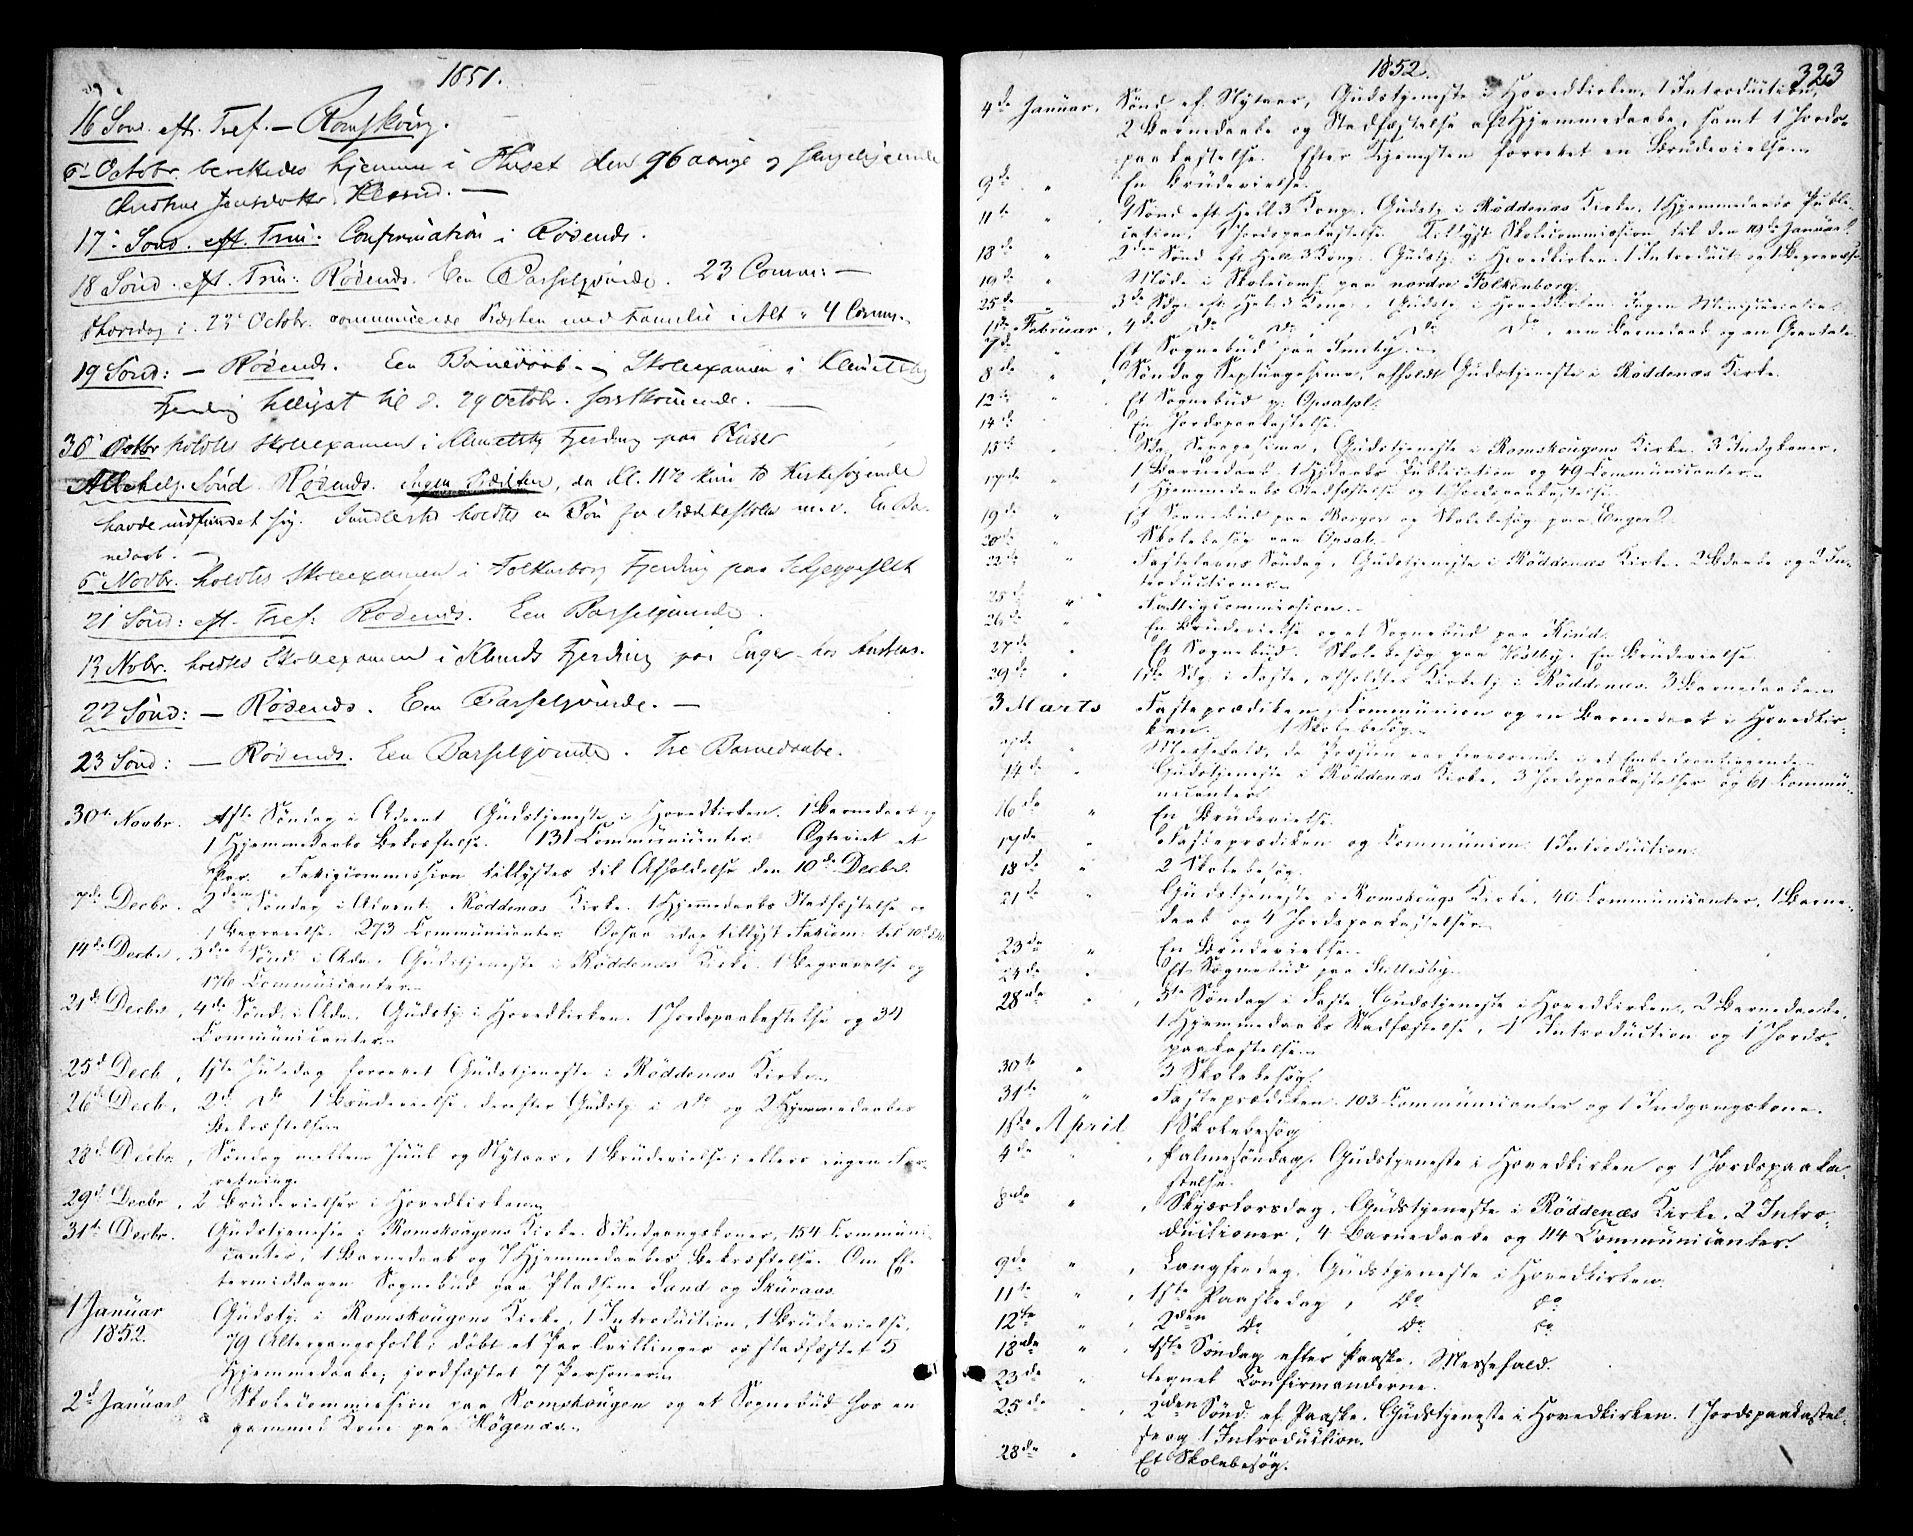 1851.
16 Sønd. eft. Tref. — Romskoug.
6 Octobr. berettedes hjemme i Huset den 96 aarige og sengeliggende
17 Sønd. eft. Trin: Confirmation i Rødenæs.
18 Sønd. eft. Trin: Rødenæs. Een Barselqvinde. 23 Comm: —
Thorsdag d. 23 Octobr. communicerede Præsten med Familie i Alt 4 Comm.
19 Sønd: — Rødenæs. Een Barnedaab. — Skoleexamen i
Fjerding tillyst til d. 29 Octobr. førstkommende. —
30 Octbr holdtes Skoleexamen i Fjerding paa
Allehelg. Sønd. Rødenæs. Ingen Prædiken, da Kl. 11½ kun 10 Kirkesøgende
havde indfundet sig. Imidlertid holdtes en Bøn fra Prædikestolen med. En Bar-
nedaab. —
6 Novbr. holdtes Skoleexamen i Folkenborg Fjerding paa
21 Sønd: eft. Tref: Rødenæs. Een Barselqvinde.
13 Novbr. holdtes Skoleexamen i Klunds Fjerding paa Enger hos Andreas.
22 Sønd: — Rødenæs. Een Barselqvinde. —
23 Sønd: — Rødenæs. Een Barselqvinde. Tre Barnedaabe.
30te Novbr. 1ste Søndag i Advent Gudstjeneste i Hovedkirken. 1 Barnedaab og
1 Hjemmedaabs Bekræftelse. 131 Communicanter. Ægteviet et
Par. Fattigcommission tillystes til Afholdelse den 10de Decbr.
7de Decbr. 2den Søndag i Advent. Røddenæs Kirke. 1 Hjemmedaabs Stadfæstelse og
1 Begravelse. 273 Communicanter. tillyst til 10d
14de Decbr. 3die Sønd. i Adv. Gudstjeneste i Røddenæs Kirke. 1 Begravelse og
176 Communicanter.
21de Decbr. 4de Sønd. i Adv. Gudstj: i Hovedkirken. 1 Jordspaakastelse og 34
Communicanter.
25d Decb. 1ste Juledag forrettet Gudstjeneste i Røddenæs Kirke
26d Decb. 2d Do 1 Brudevielse, derefter Gudstj i Do og 2 Hjemmedaabes
Bekræftelse
28d Decbr. Søndag mellem Juul og Nytaar. 1 Brudevielse; ellers ingen For-
retning.
29d Decbr. 2 Brudevielser i Hovedkirken
31te Decbr. Gudstjeneste i Romskougens Kirke. 8 Indgangskoner, 154 Communi-
canter, 1 Barnedaab og 7 Hjemmedaabes Bekræftelse. Om Ef-
termiddagen Sognebud paa Pladsene Sand og Skuraas.
1 Januar Gudstj. i Romskougens Kirke, 1 Introduction, 1 Brudevielse,
1852. 79 Altergangsfolk; døbt et Par Tvillinger og stadfæstet 5
Hjemmedaabe; jordfæstet 7 Personer.
2d Januar Skolecommission paa Romskougen og et Sognebud hos en
gammel Kone paa Høgenæs.
1852. 323
4de Januar, Sønd ef. Nytaar, Gudstjeneste i Hovedkirken, 1 Introduction,
2 Barnedaabe og Stadfæstelse af Hjemmedaabe, samt 1 Jords-
paakastelse. Efter Tjenesten forrettet en Brudevielse
9de " En Brudevielse.
11te " 1 Sønd eft Hell 3 Kong. Gudstj i Røddenæs Kirke. 1 Hjemmedaabs Publi-
cation, 1 Jordspaakastelse. Tillyst Skolecommission til den 19de Januar.
18de " 2den Sønd eft Hell 3 Kong. Gudstj. i Hovedkirken. 1 Introduct: og 1 Begravelse
19de " Møde i Skolecoms paa nordre Folkenborg.
25de " 3de Sdg. eft Hel. 3 Kong. Gudstj i Hovedkirken. Ingen
1ste Februar, 4de Do Do Do Do, een Barnedaab og en
7de " Et Sognebud paa
8de " Søndag Septuagesima, afholdt Gudstjeneste i Røddenæs Kirke.
12te " Et Sognebud p:
14de " En Jordspaakastelse.
15de " Gudstjeneste i Romskougens Kirke. 3 Indgkoner,
17de " 1 Barnedaab, 1 Hjdaabs Publication og 49 Communicanter
1 Hjemmedaabs Stadfæstelse og 1 Jordspaakastelse.
19de " Et Sognebud paa og Skolebesøg paa Enger.
20de Skolebesøg paa Opsal.
22de " Fastelavns Søndag, Gudstjeneste i Røddenæs Kirke. 2 Bdaabe og 2 In-
troductioner.
25de " Fattigcommission.
26de " En Brudevielse og et Sognebud paa
27de " Et Sognebud. Skolebesøg paa En Brudevielse
29de " 1ste Sdg. i Faste, afholdtes Kirketj i Røddenæs. 3 Barnedaabe
3 Marts Fasteprædiken, Communion og en Barnedaab i Hovedkir-
ken. 1 Skolebesøg.
" Messefald, da Præsten var fraværende i et Embedsanliggende
14de " Gudstjeneste i Røddenæs Kirke, 3 Jordspaakastelser og 61 Commu-
nicanter
16de " En Brudevielse.
17de " Fasteprædiken og Communion. 1 Introduction.
18de " 2 Skolebesøg.
21de " Gudstjeneste i Romskougs Kirke. 40 Communicanter, 1 Barne-
daab og 4 Jordspaakastelser.
23de " En Brudevielse.
24de " Et Sognebud paa
28nde " 5te Søndag i Faste. Gudstjeneste i Hovedkirken, 2 Barnedaabe,
1 Hjemmedaabs Stadfæstelse, 1 Introduction og 1 Jords-
paakastelse.
30te " 3 Skolebesøg.
31te " Fasteprædiken. 103 Communicanter og 1 Indgangskone.
1ste April 1 Skolebesøg
4de " Palmesøndag. Gudstjeneste i Hovedkirken og 1 Jordspaaka-
stelse.
8nde " Skjærtorsdag. Gudstjeneste i Røddenæs Kirke. 2 Intro-
ductioner, 4 Barnedaabe og 114 Communicanter.
9de " Langfredag. Gudstjeneste i Hovedkirken
11te " 1ste Paaskedag, Do Do
12te " 2den Do, Do Do
18nde " 1ste Søndag efter Paaske. Messefald.
23de " tegnet Confirmanderne.
25de " 2den Sønd: ef. Paaske. Gudstjeneste i Hovedkirken. 1 Jordspaakastel-
se og 1 Introduction.
28de " Et Skolebesøg.